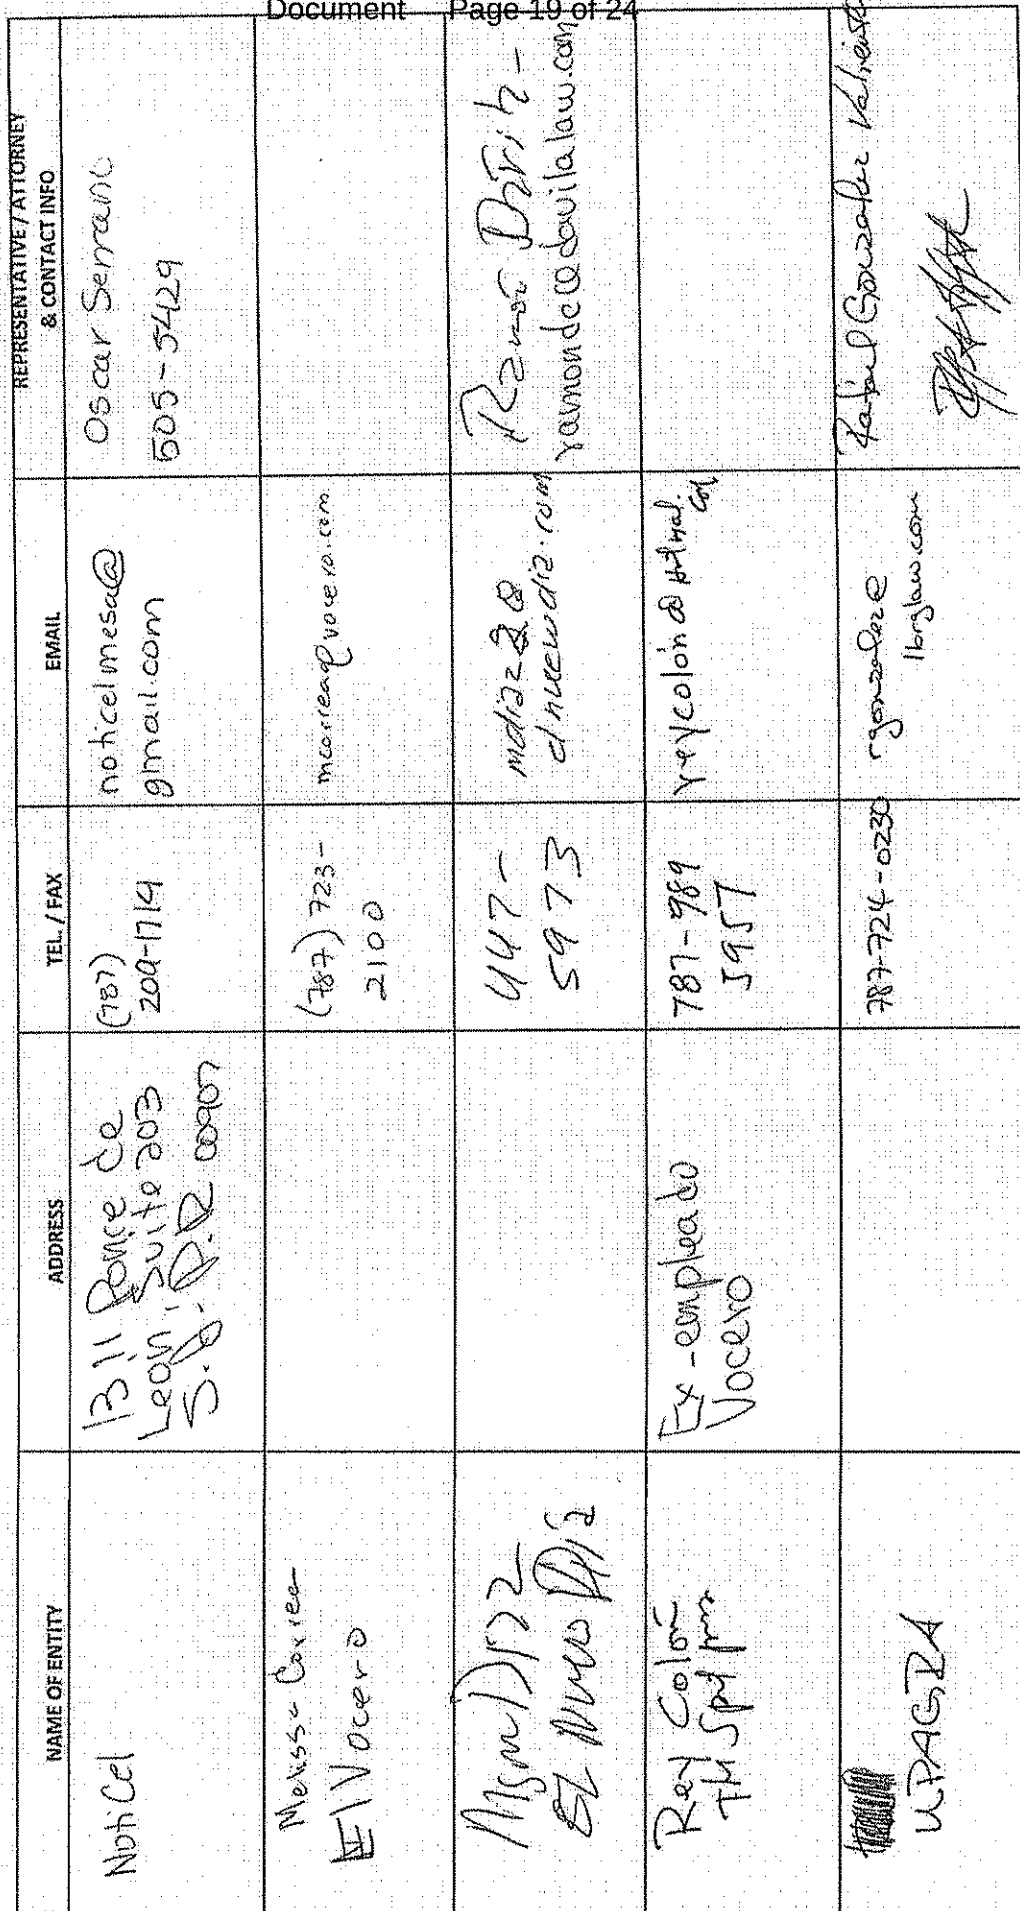 Document Page 19 of 24
NAME OF ENTITY
ADDRESS
TEL. / FAX
EMAIL
REPRESENTATIVE / ATTORNEY
& CONTACT INFO
NotiCel
1311 Ponce de
Leon, Suite 203
S.J. P.R 00907
(787)
209-1714
noticelmesa@
gmail.com
Oscar Serrano
505-5429
Melissa Correa
El Vocero
(787) 723-
2100
mcorrea@vocero.com
El Nuevo Día
447-
5973
elnuevodia.com
Ramón Dávila-
ramonde@davilalaw.com
Rey Colón
Ex-empleado
Vocero
787-989
5957
reycolón@hotmail.
com
UPAGRA
787-724-0230
rgonzalez@
lbrglaw.com
Rafael González Valiente